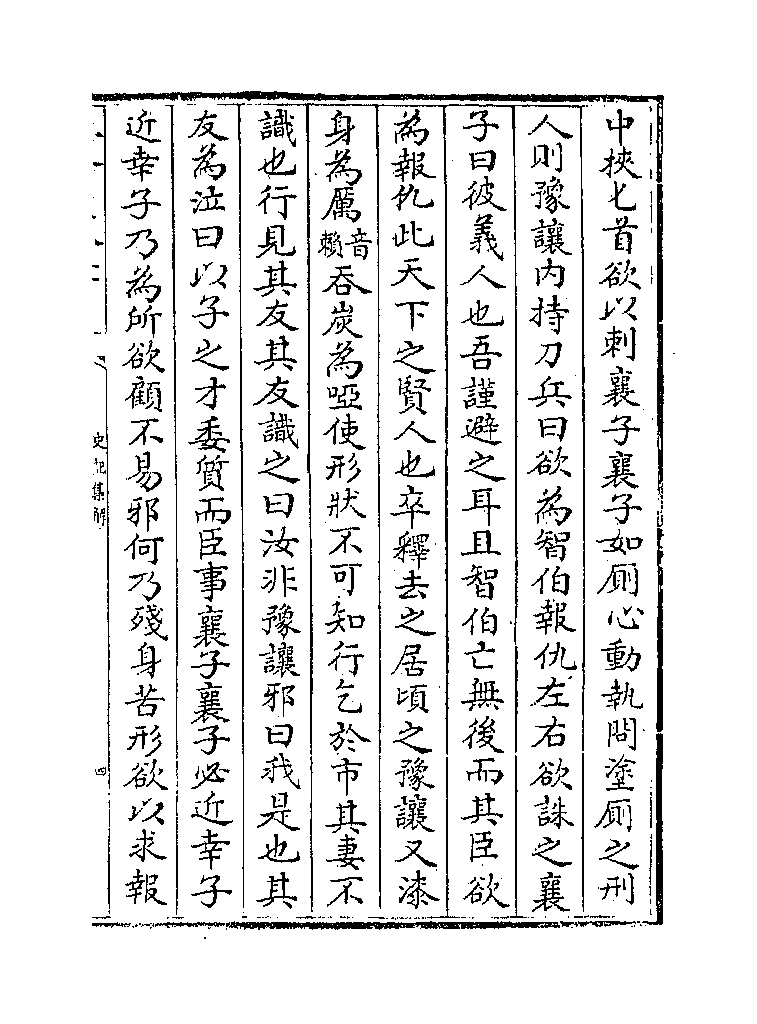 中挾匕首欲以刺襄子襄子如厠心動執問塗厠之刑
人則豫讓内持刀兵曰欲為智伯報仇左右欲誅之襄
子曰彼義人也吾謹避之耳且智伯亡無後而其臣欲
為報仇此天下之賢人也卒釋去之居頃之豫讓又漆
身為厲音賴吞炭為啞使形狀不可知行乞於市其妻不
識也行見其友其友識之曰汝非豫讓邪曰我是也其
友為泣曰以子之才委質而臣事襄子襄子必近幸子
近幸子乃為所欲顧不易邪何乃殘身苦形欲以求報
史記集解
四